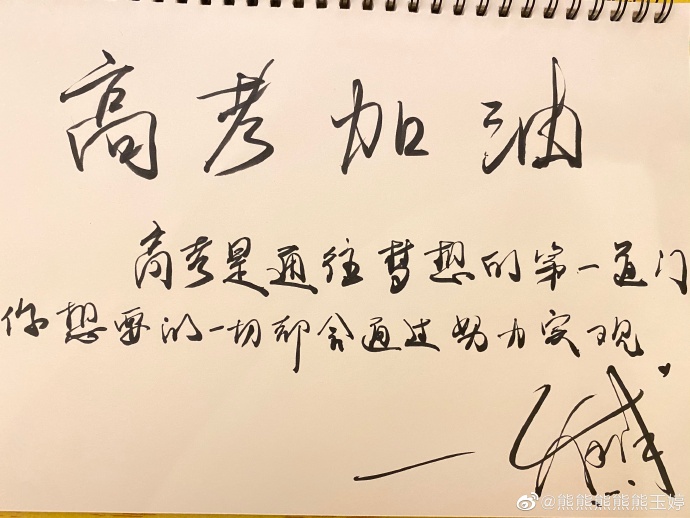 高考加油
高考是通往梦想的第一道门
你想要的一切都会通过努力实现
@熊熊熊熊熊玉婷